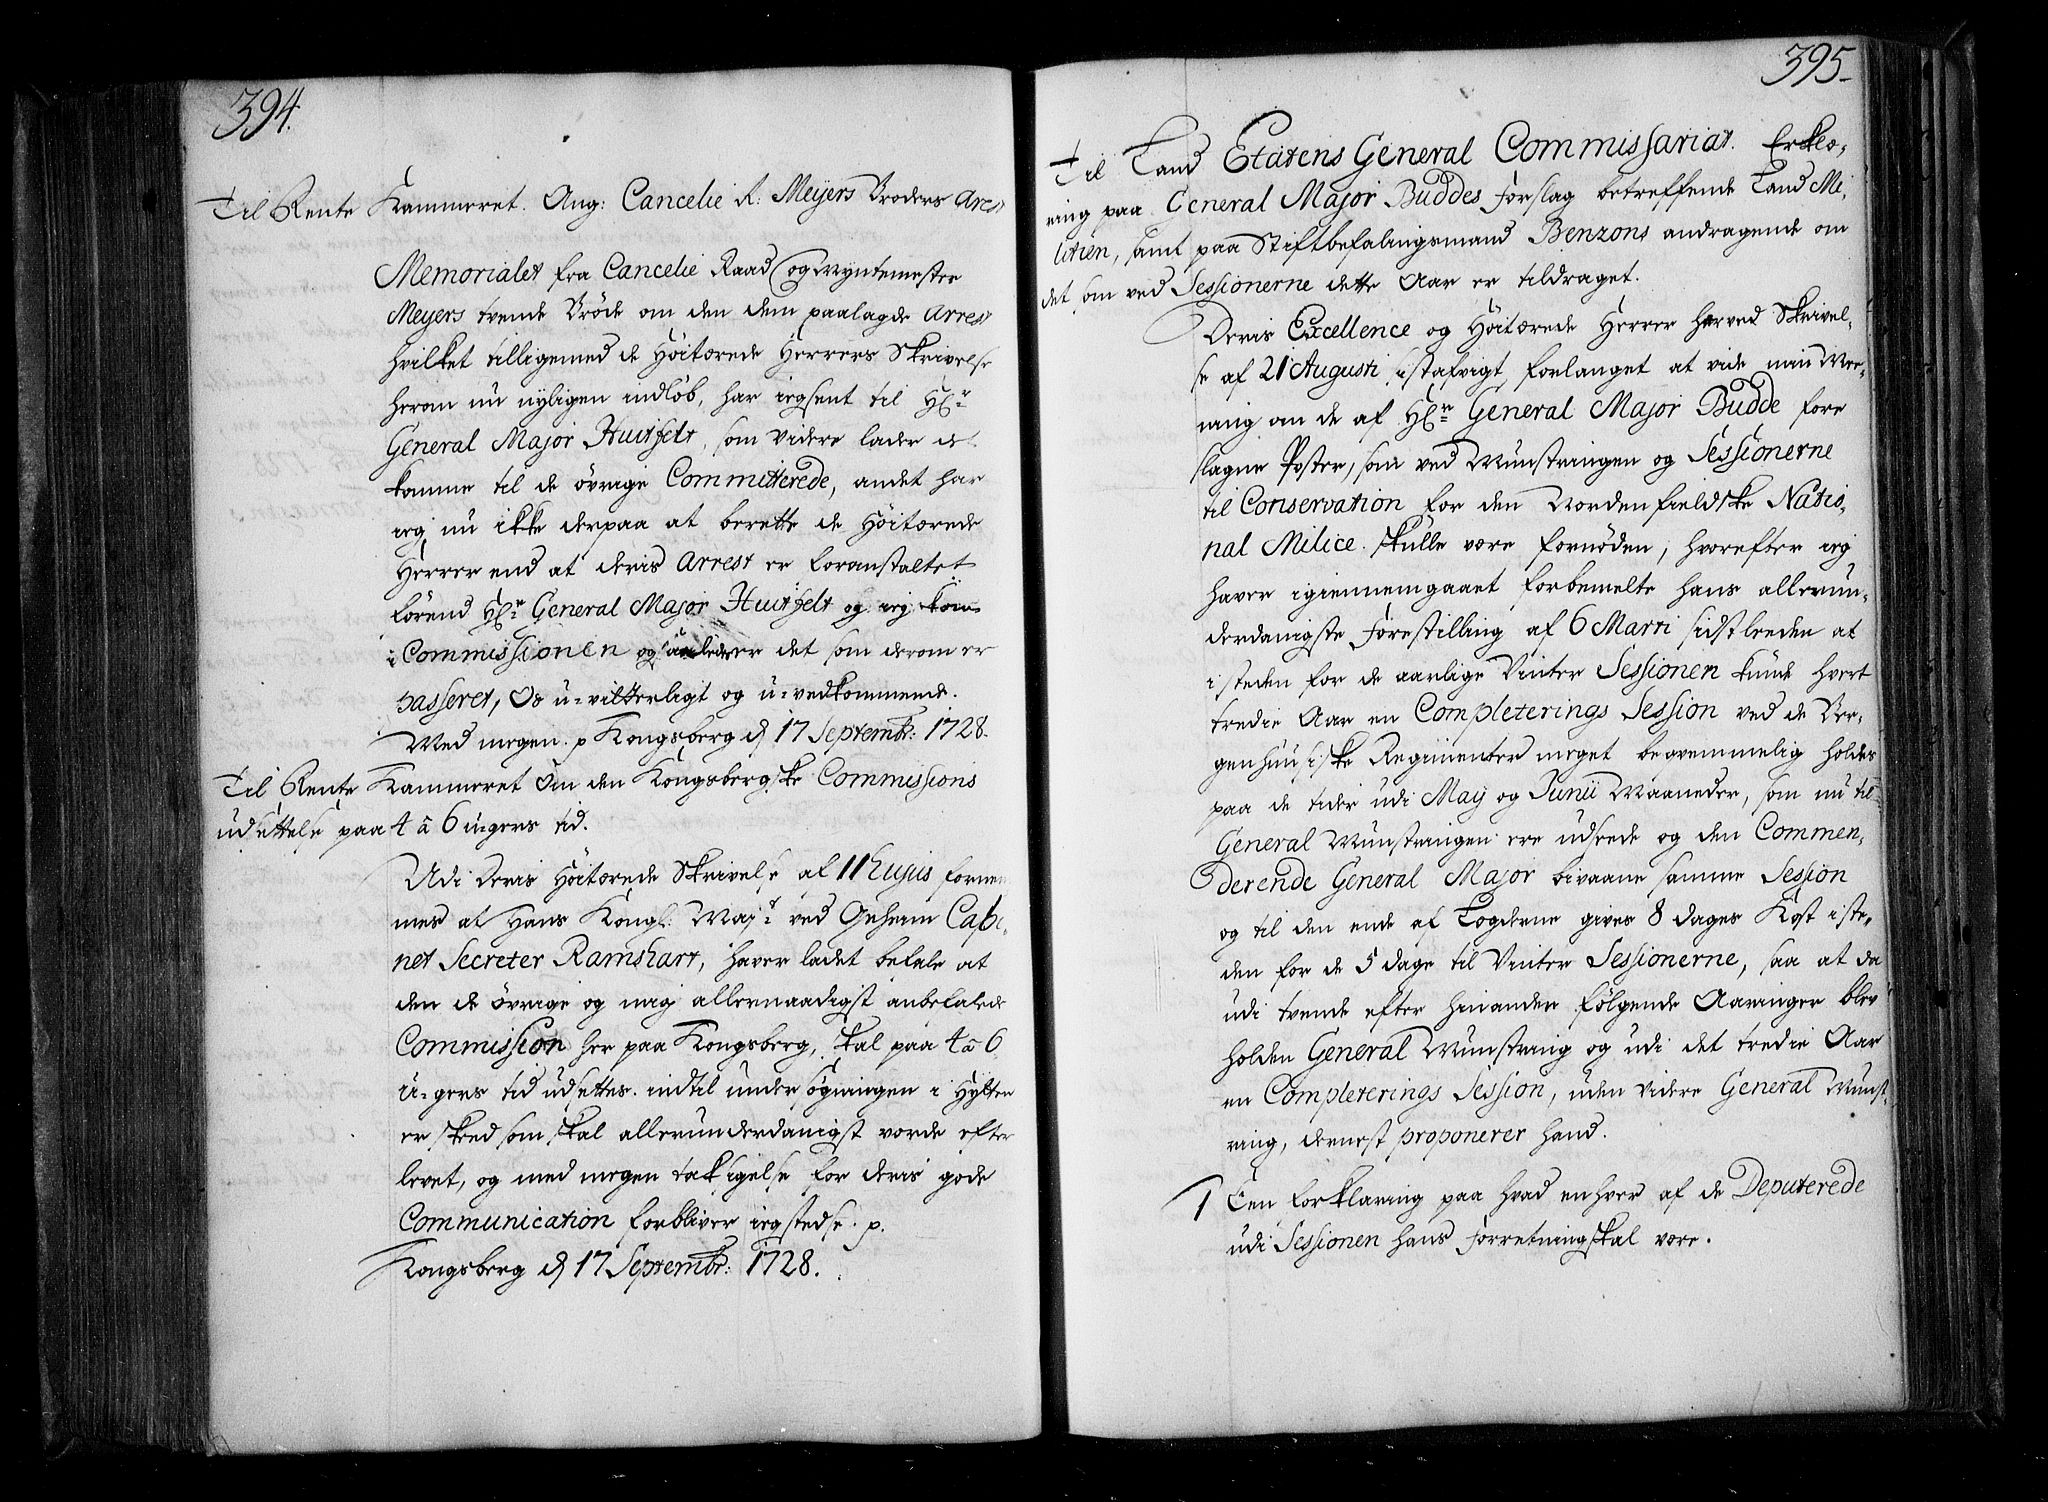 394.
Til Rente Kammeret. Ang: Cancelie R: Meyers Broders Arest
Memorialet fra Cancelie Raad og Myntemester
Meyers tvende Bröde om den dem paalagde Arrest
hvilket tilligemed de Höitærede Herrers Skrivelse
herom nu nyligen indlöb, har ieg sent til Hr
General Major Huitfelt, som videre lader det
komme til de övrige Committerede, andet har
ieg nu ikke derpaa at berette de Höitærede
Herrer end at deris Arrest er foranstaltet
förend Hr General Major Huitfelt og ieg kom
i Commissionen og saaledes er det som derom er
passeret, Os u-vitterligt og u-vedkommende.
Med megen p Kongsberg d 17 Septembr: 1728.
Til Rente Kammeret Om den Kongsbergske Commissions
udsettelse paa 4 â 6 ugers tid.
Udi Deris Höitærede Skrivelse af 11 Hujus fornem
mes at Hans Kongl: Mayt ved Geheim Cabi-
net Secreter Ramshart, haver ladet befale at
den de övrige og mig allernaadigst anbefalede
Commission her paa Kongsberg, skal paa 4 â 6
u-gers tid udsettes indtil undersögningen i Hylten
er skeed som skal allerunderdanigst vorde efter
levet, og med megen taksigelse for deris gode
Communication forbliver ieg stedse. p.
Kongsberg d 17 Septembr: 1728.
395.
Til Land Etatens General Commissariat. Erklæ-
ring paa General Major Buddes forslag betreffende Land Mi-
litien, samt paa Stiftbefalingsmand Benzons andragende om
det som ved Sessionerne dette Aar er tildraget.
Deris Excellence og Höitærede Herrer haved Skrivel-
se af 21 Augusti forlanget at vide min Mee-
ning om de af Hr General Major Budde fore
slagne Poster, som ved Munstringen og Sessionerne
til Conservation for den Nordenfieldske Natio-
nal Milice skulle være fornöden, hvorefter ieg
haver igiennemgaaet forbemelte hans allerun-
derdanigste forestilling af 6 Marti sidstleeden at
i steden for de aarlige Vinter Sessionen kunde hvert
tredie Aar en Completerings Session ved de Ber-
genhuusiske Regimenter meget beqvemmelig holdes
paa de tider udi May og Junii Maaneder, som nu til
General Munstringen ere udseede og den Commen-
derende General Major bivaane samme Session
og til den ende af Lægderne gives 8 dages Kost i ste-
den for de 5 dage til Vinter Sessionerne, saa at da
udi tvende efter hinanden fölgende Aaringer blev
holden General Munstring og udi det tredie Aar
en Completerings Session, uden videre General Munst-
ring, dernest proponerer hand.
1 Een forklaring paa hvad enhver af de Deputerede
udi Sessionen hans forretning skal være.